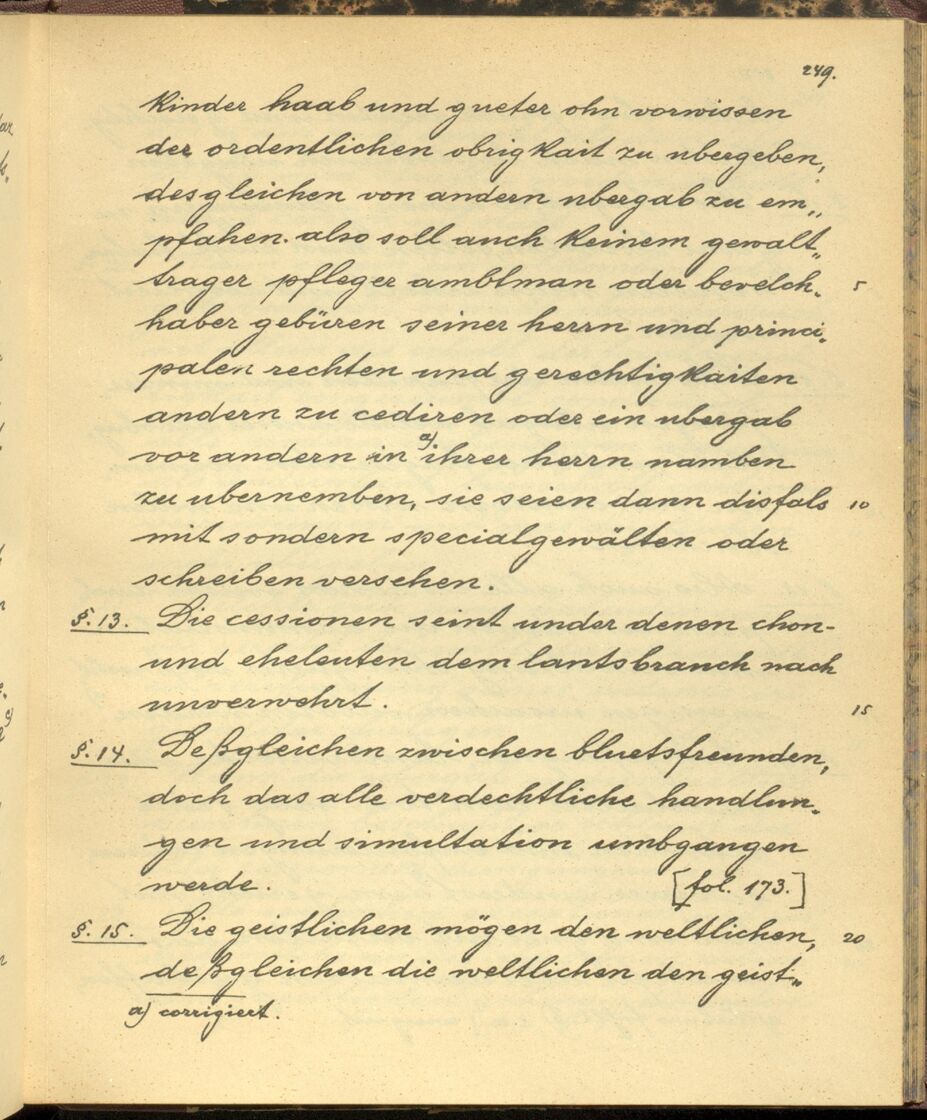 249.
kinder haab und gueter ohn vorwissen
der ordentlichen obrigkait zu ubergeben,
desgleichen von andern ubergab zu em„
pfahen. also soll auch keinem gewalt„
trager pfleger ambtman oder bevelch„ 5
haber gebüren seiner herrn und princi„
palen rechten und gerechtigkaiten
andern zu cediren oder ein ubergab
vor andern in a) ihrer herrn namben
zu ubernemben, sie seien dann disfals 10
mit sondern specialgewälten oder
schreiben versehen.
§. 13. Die cessionen seint under denen chon-
und eheleuten dem lantsbrauch nach
unverwehrt. 15
§. 14. Deßgleichen zwischen bluetsfreunden,
doch das alle verdechtliche handlun„
gen und simultation umbgangen
werde. [fol. 173.]
§. 15. Die geistlichen mögen den weltlichen, 20
deßgleichen die weltlichen den geist„
a) corrigiert.